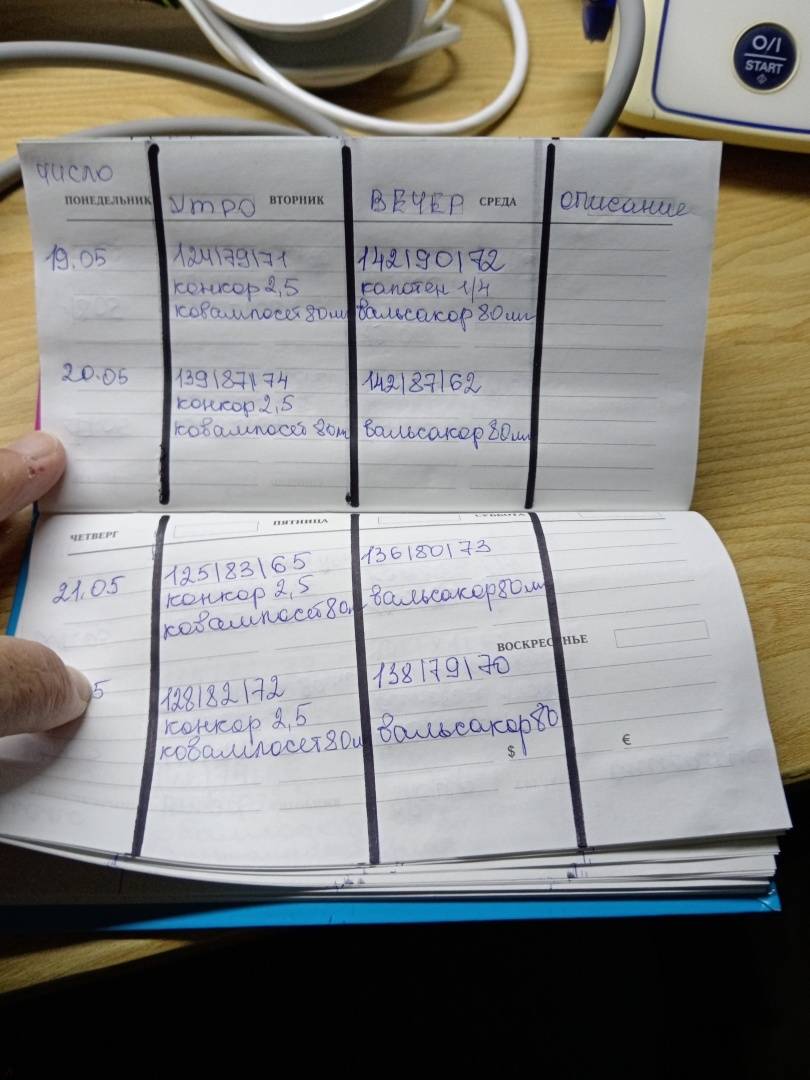 O/I
START
число
ПОНЕДЕЛЬНИК утро ВТОРНИК ВЕЧЕР СРЕДА описание
19.05 124/79/71 142/90/72
конкор 2,5 капотен 1/4
ковампосет 80мг вальсакор 80мг
20.05 139/87/74 142/87/62
конкор 2,5
ковампосет 80м вальсакор 80мг
ЧЕТВЕРГ ПЯТНИЦА СУББОТА
21.05 125/83/65 136/80/73
конкор 2,5 вальсакор 80мг
ковампосет 80м
ВОСКРЕСЕНЬЕ
5 128/82/72 138/79/70
конкор 2,5 вальсакор 80
ковампосет 80м
$ €